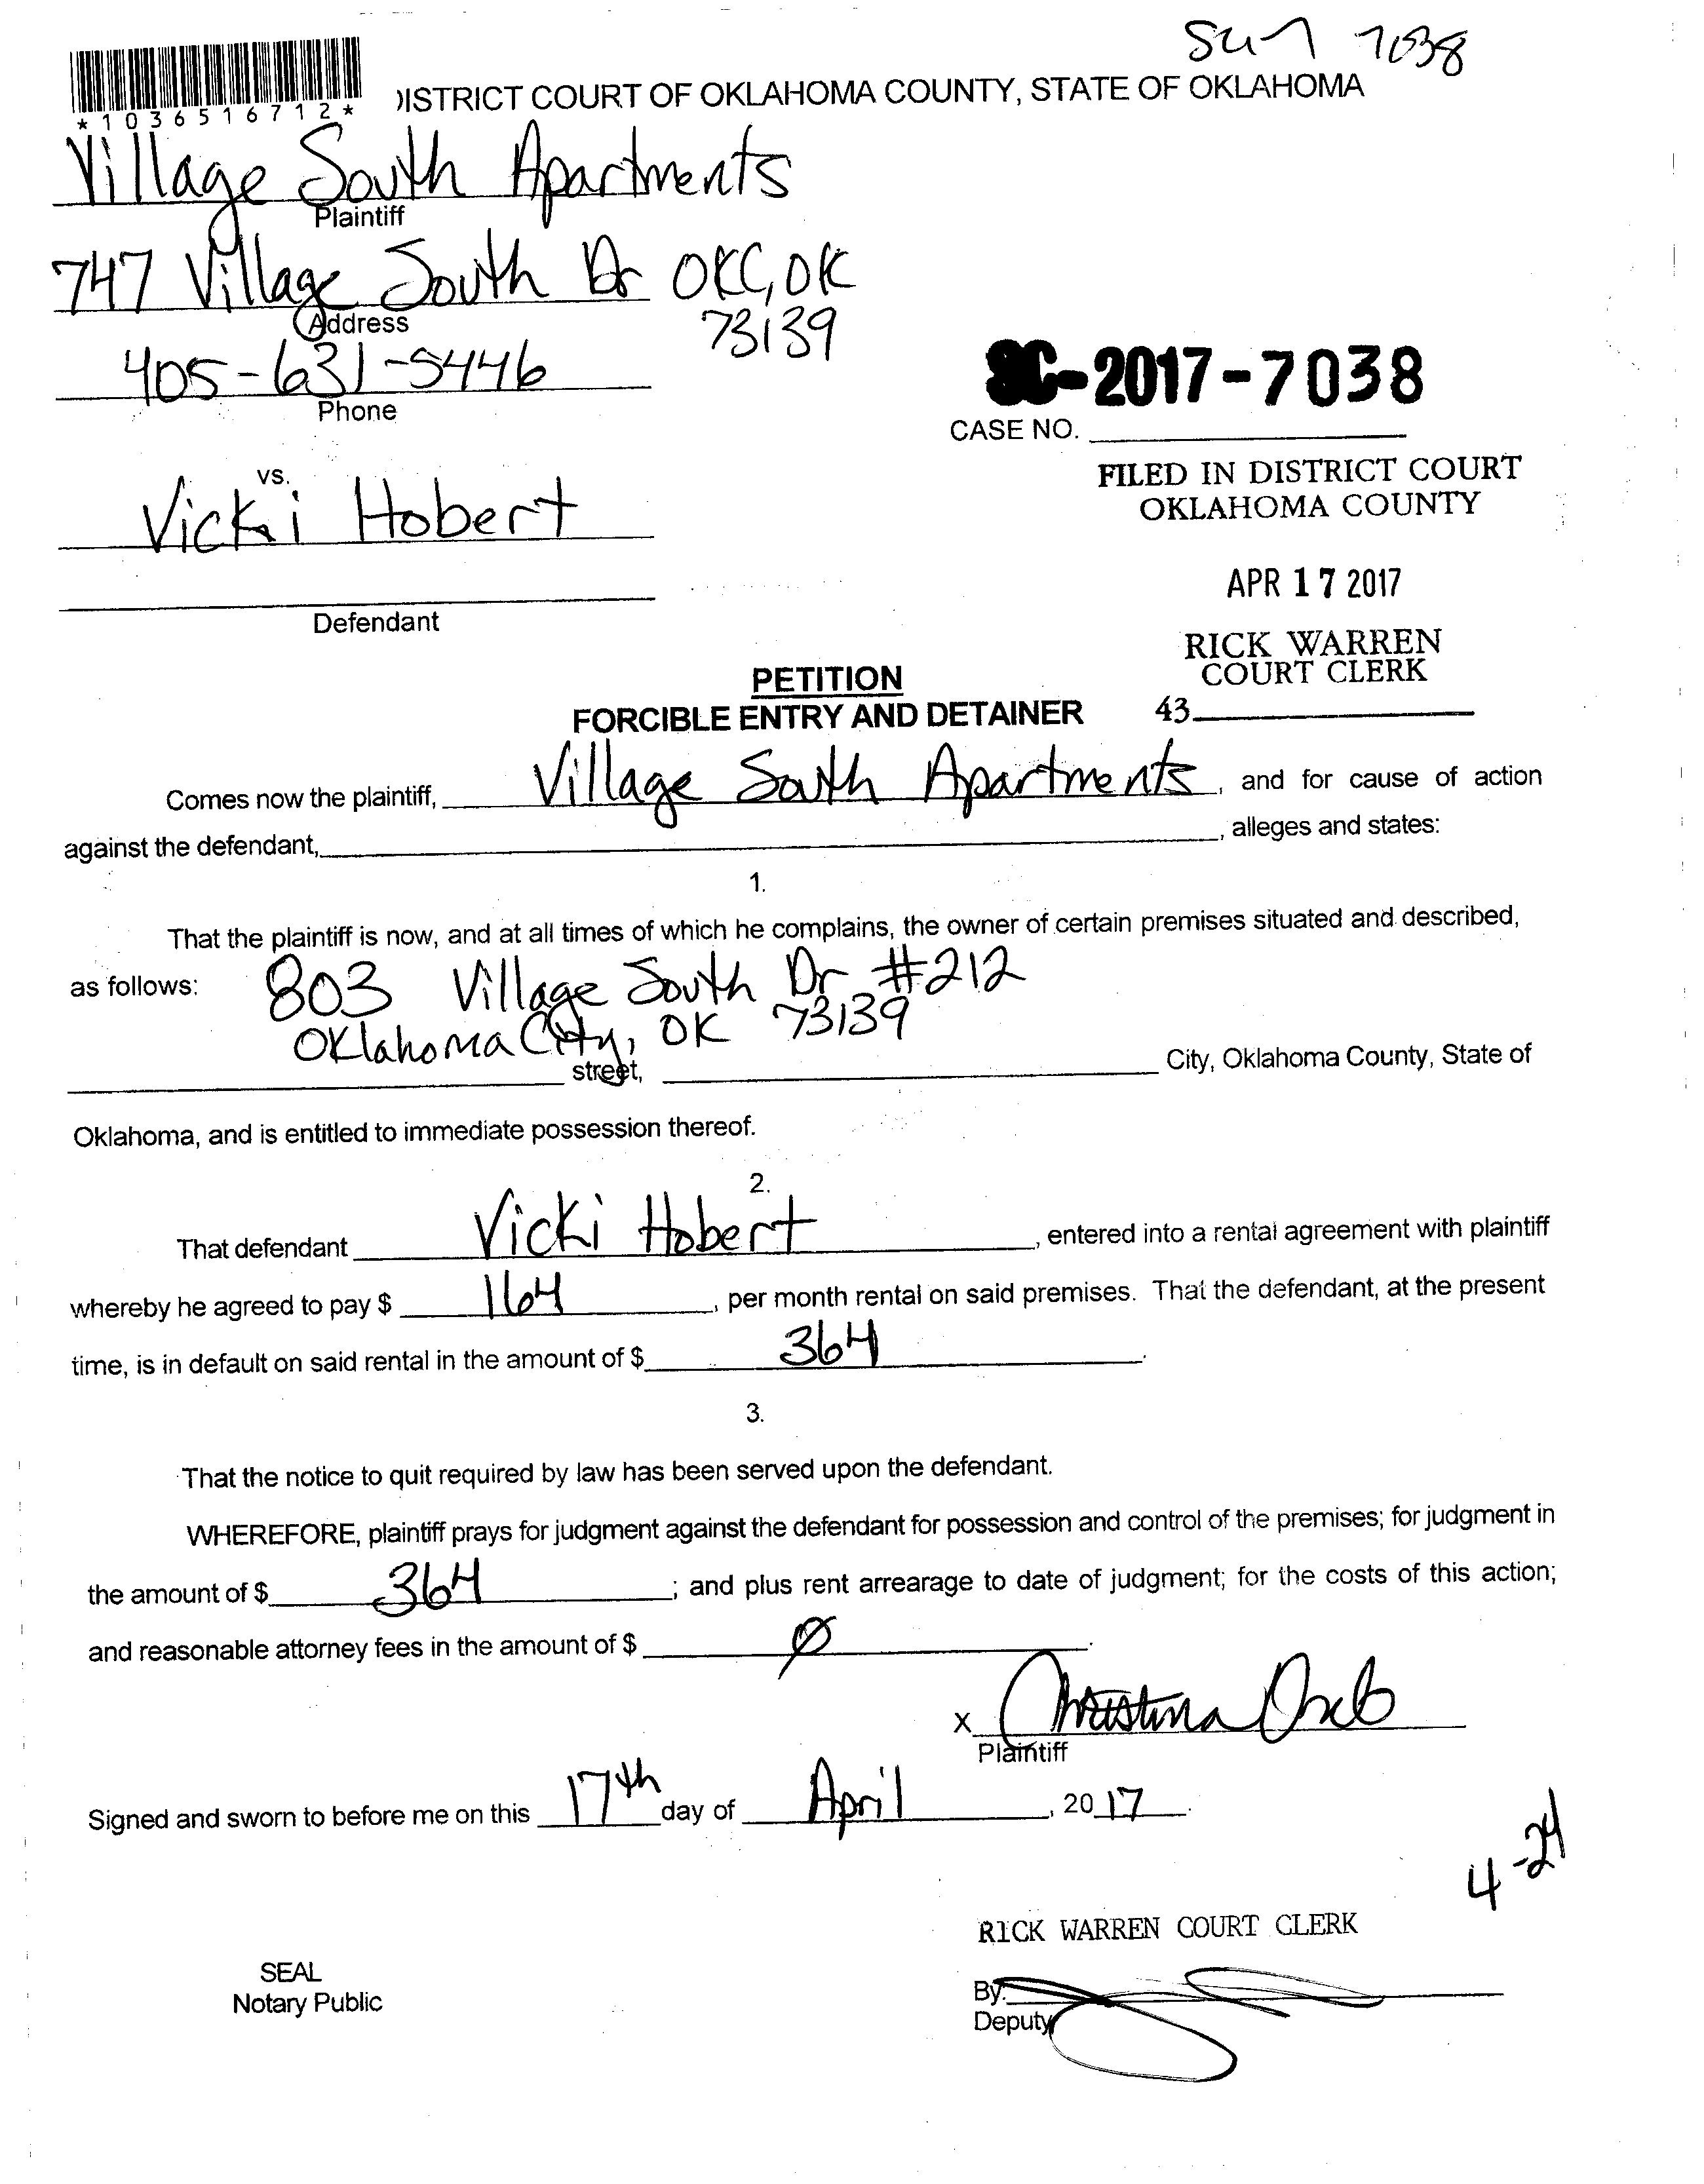 7038
*1036516712*
DISTRICT COURT OF OKLAHOMA COUNTY, STATE OF OKLAHOMA
Village South Apartments
Plaintiff
747 Village South Dr OKC, OK
73139
Address
405-631-5446
Phone
SC-2017-7038
CASE NO.
FILED IN DISTRICT COURT
OKLAHOMA COUNTY
vs.
Vicki Hobert
APR 17 2017
Defendant
RICK WARREN
COURT CLERK
43
PETITION
FORCIBLE ENTRY AND DETAINER
Comes now the plaintiff, Village South Apartments, and for cause of action
against the defendant, , alleges and states:
1.
That the plaintiff is now, and at all times of which he complains, the owner of certain premises situated and described,
as follows: 803 Village South Dr #212
Oklahoma City, OK 73139
street, City, Oklahoma County, State of
Oklahoma, and is entitled to immediate possession thereof.
2.
That defendant Vicki Hobert, entered into a rental agreement with plaintiff
whereby he agreed to pay $ 164, per month rental on said premises. That the defendant, at the present
time, is in default on said rental in the amount of $ 364.
3.
That the notice to quit required by law has been served upon the defendant.
WHEREFORE, plaintiff prays for judgment against the defendant for possession and control of the premises; for judgment in
the amount of $ 364; and plus rent arrearage to date of judgment; for the costs of this action;
and reasonable attorney fees in the amount of $ Ø.
x Christina
Plaintiff
Signed and sworn to before me on this 17th day of April, 2017.
4-24
RICK WARREN COURT CLERK
SEAL
Notary Public
By:
Deputy